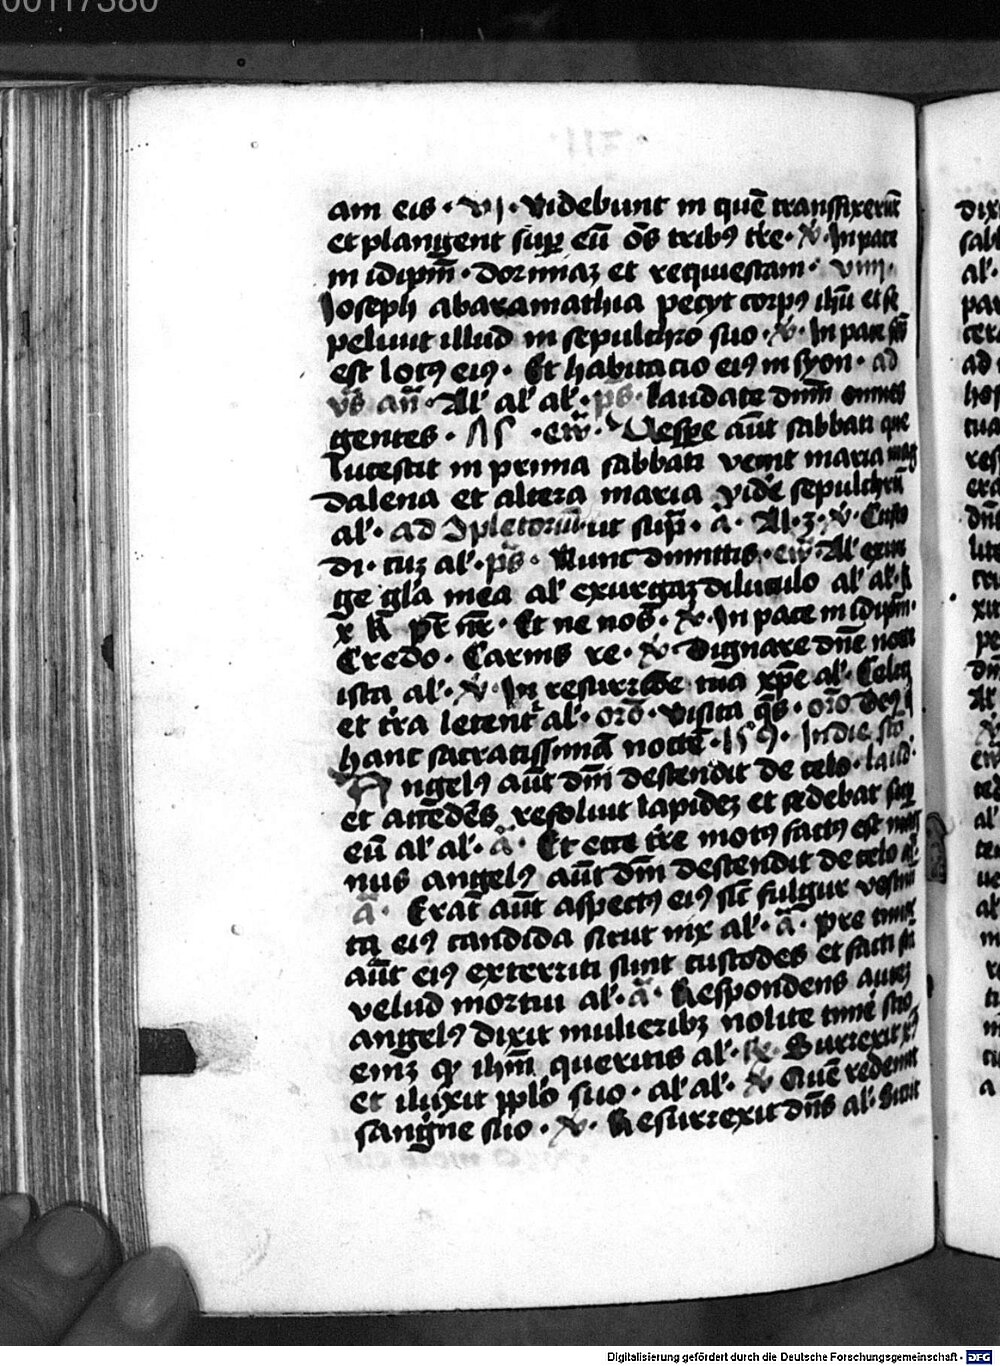 00117380
am eis · vj · Videbunt in quē transfixerūt
et plangent suꝑ eū ōs tribꝰ tre · ℣ · In pace
in idipm̄ · dormiaꝫ et requiestam · viiii ·
Joseph abaramathia pecyt corpꝰ ihū et se
peliuit illud in sepulchro suo · ℣ · In pace
est locꝰ eiꝰ · Et habitacio eiꝰ in syon · ad
v̄s an̄ · Al' al' al' · ps̄ · Laudate dnm̄ omnes
gentes · ew̄ · Vespe aūt sabbati que
lucescit in prima sabbati venit maria mag
dalena et altera maria vide sepulchrū
al' · ad ꝯpletoriū · ut sup̄ · ā · Al · 3 · ℣ · Custo
di · cuꝫ al' · ps̄ · Nunc dimittis · ew̄ · Al' exur
ge gla mea al' exurgaꝫ diluculo al' al' · k
x̄ k̄ pr̄ nr̄ · Et ne nos · ℣ · In pace in idipm̄ ·
Credo · Carnis re · ℣ · Dignare dn̄e nocte
ista al' · ℣ · In resurrcōe tua xp̄e al' · Celū
et tra letent̄ al' · orō · Visita qs̄ · orō Deꝰ q
hanc sacratissimā nocte · 159 · In die sco
Angelꝰ aūt dm̄ descendit de celo · laud'
et accedēs reuoluit lapideꝫ et sedebat suꝑ
eū al' al' · ā · Et ecce tre motꝰ factꝰ est mag
nus angelꝰ aūt dm̄ descendit de celo al'
ā · Erat aūt aspectꝰ eiꝰ sic̄ fulgur vestim̄
ta eiꝰ candida sicut nix al' · ā · Pre timoꝛ
aūt eiꝰ exterriti sunt custodes et facti st
velud mortui al' · ā · Respondens auteꝫ
angelꝰ dixit mulieribꝫ nolite timē scio
enīꝫ qꝫ ihm̄ queritis al' · ℟ · Surrexit
et iluxit pplo suo · al' al' · ℣ Quē redemit
sangne suo · ℣ · Resurrexit dn̄s al' Sicut
Digitalisierung gefördert durch die Deutsche Forschungsgemeinschaft - DFG